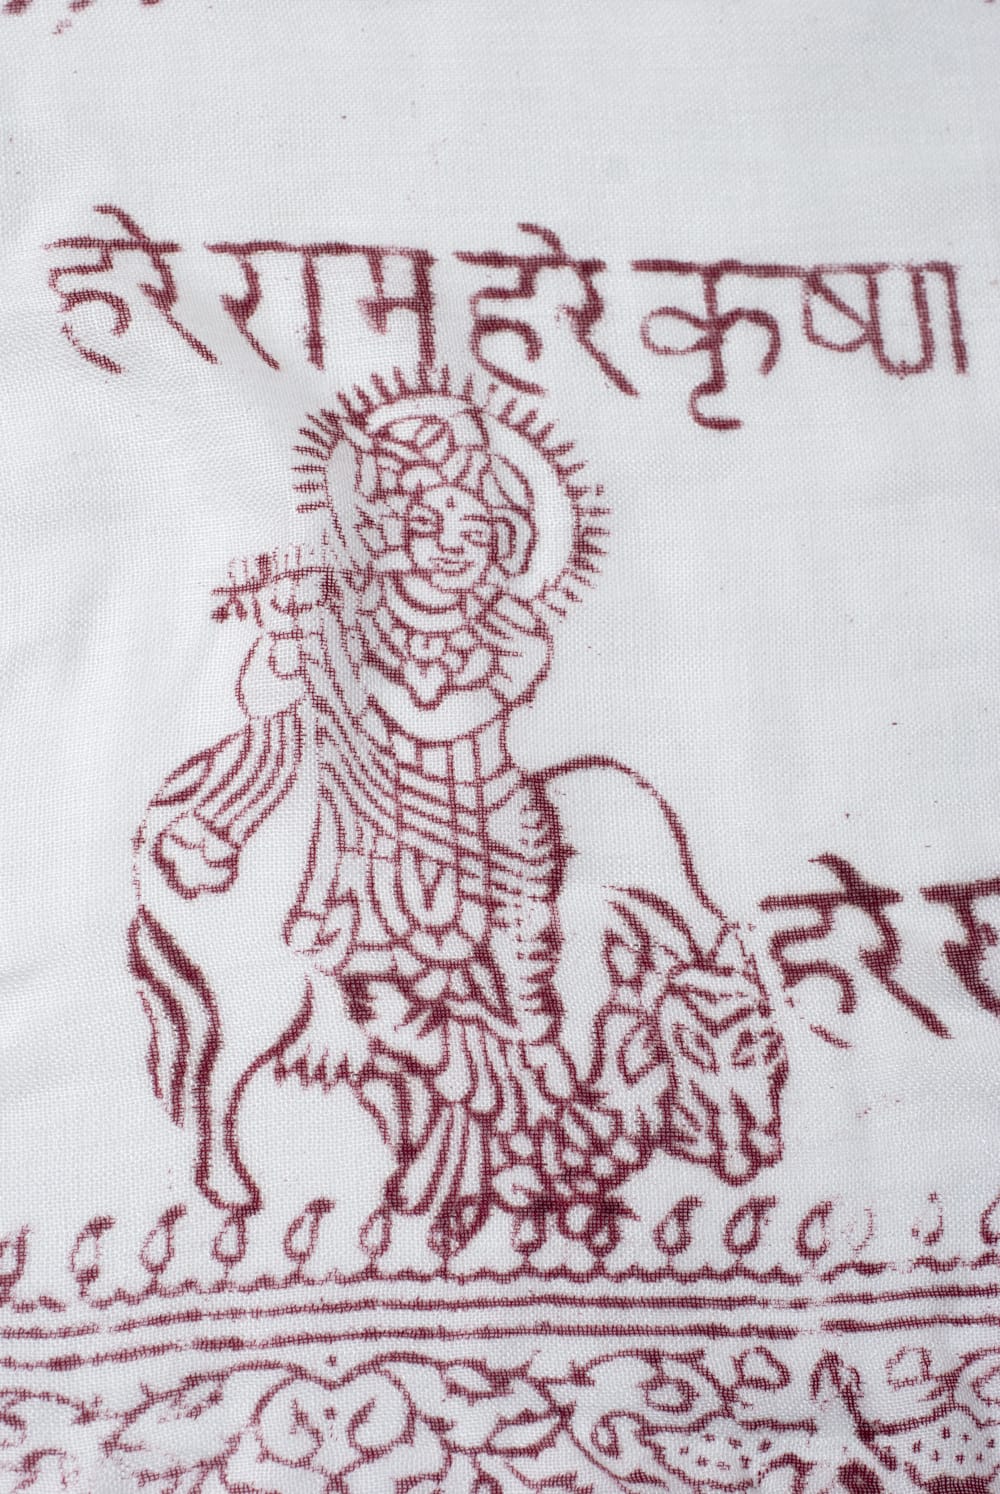 हरे राम हरे कृष्ण
हरे